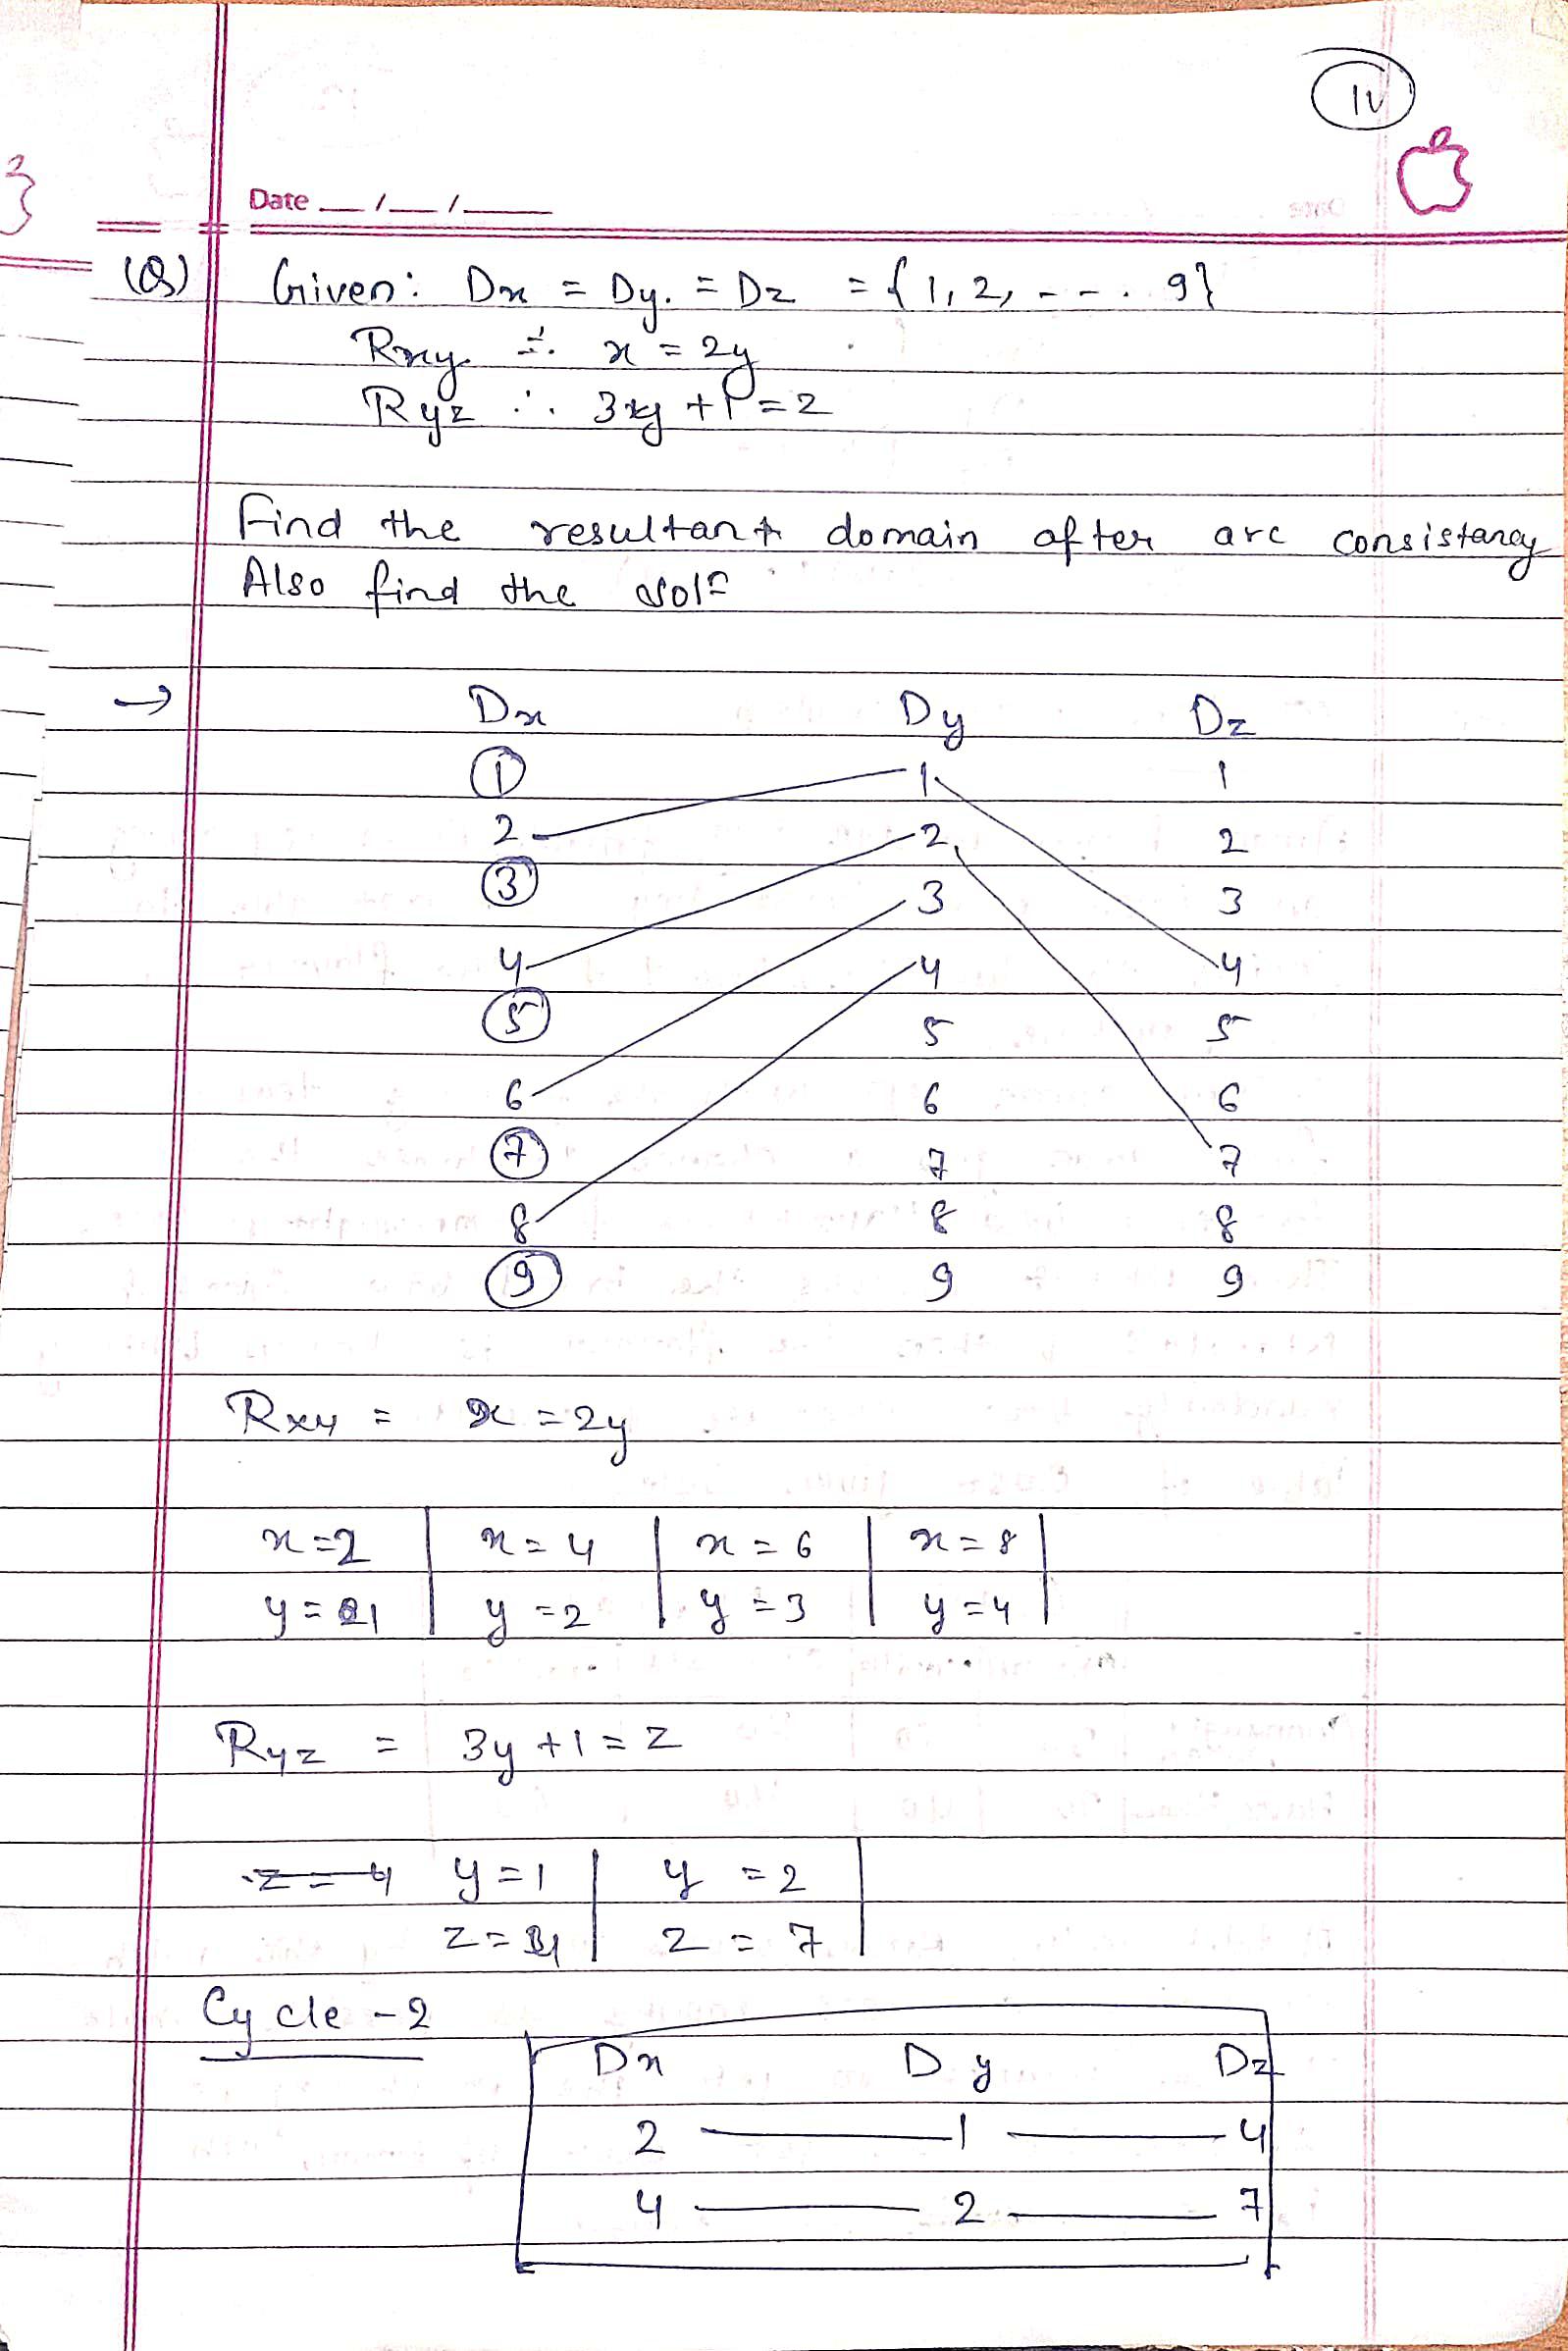 IV
3
Date __/__/____
(Q) Given: Dx = Dy. = Dz = {1, 2, - - . 9}
Rxy ∴ x = 2y
Ryz ∴ 3y + 1 = z
Find the resultant domain after arc consistancy
Also find the solⁿ
→ Dx Dy Dz
1 1 1
2 2 2
3 3 3
4 4 4
5 5 5
6 6 6
7 7 7
8 8 8
9 9 9
Rxy = x = 2y
x = 2 | x = 4 | x = 6 | x = 8 |
y = 1 | y = 2 | y = 3 | y = 4 |
Ryz = 3y + 1 = z
z = 4 y = 1 | y = 2 |
z = 4 | z = 7 |
Cycle - 2
Dx Dy Dz
2 — 1 — 4
4 — 2 — 7